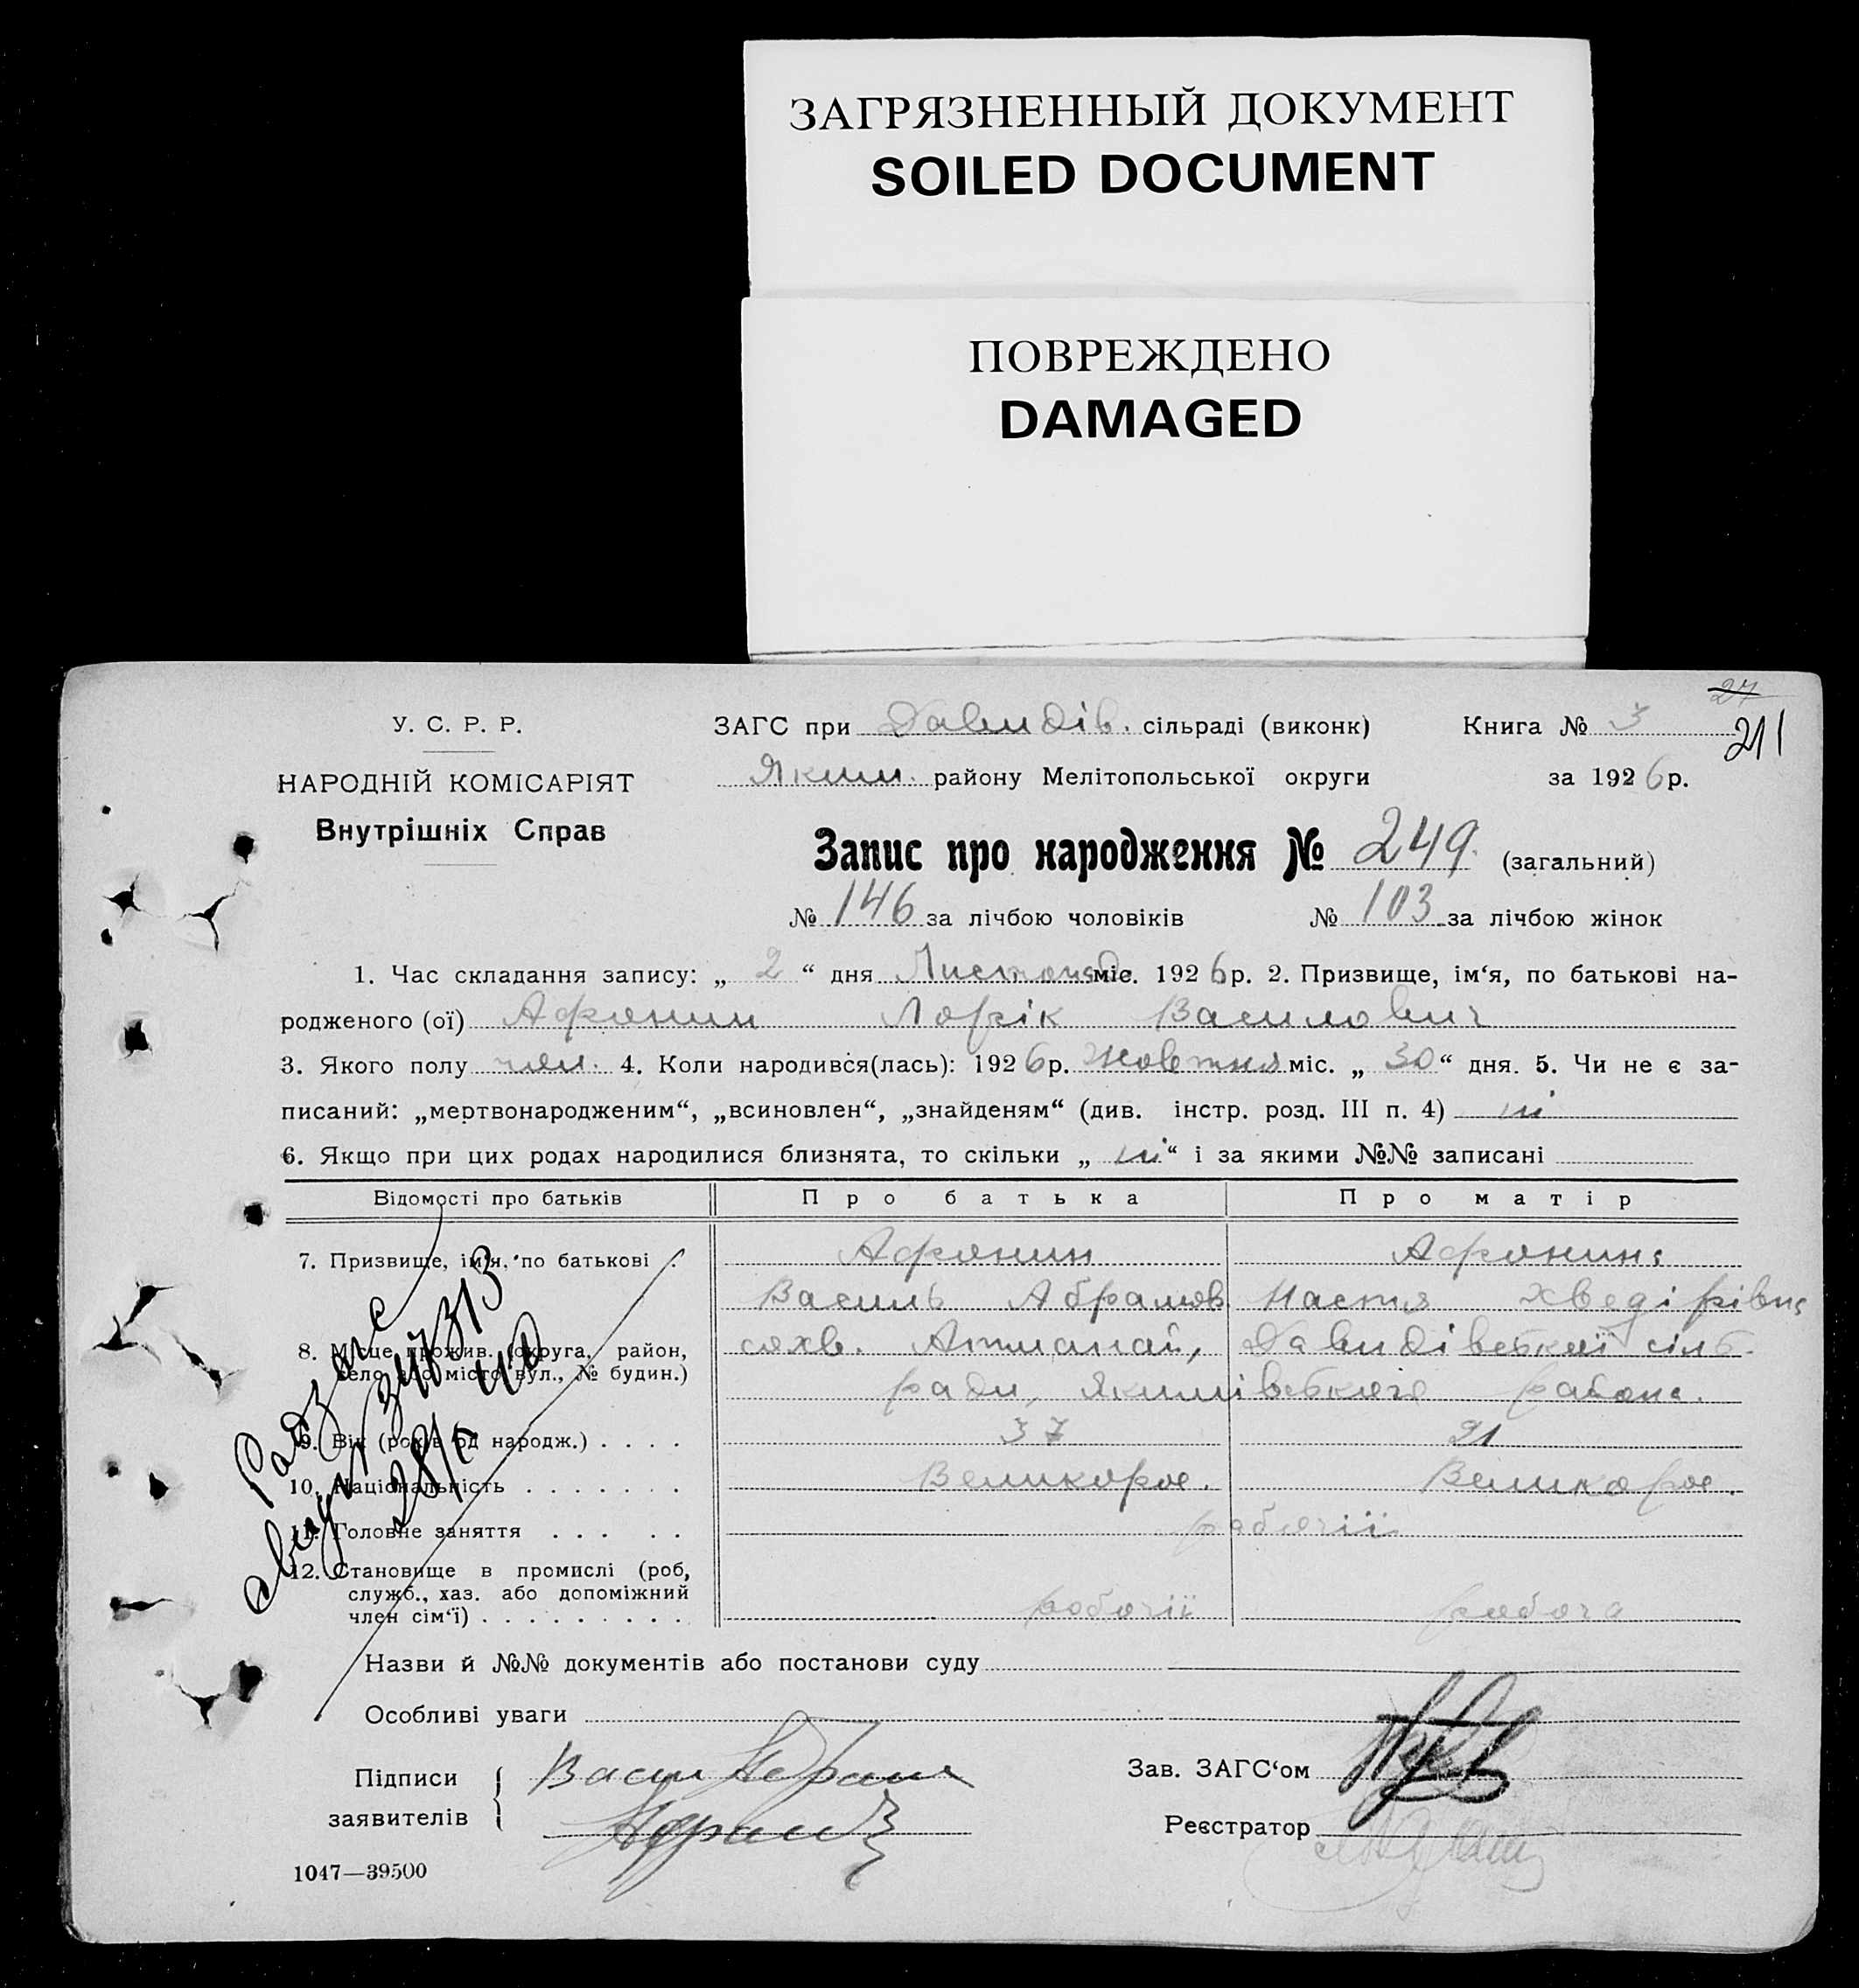 ЗАГРЯЗНЕННЫЙ ДОКУМЕНТ
SOILED DOCUMENT
ПОВРЕЖДЕНО
DAMAGED
27
211
У. С. Р. Р.
НАРОДНІЙ КОМІСАРІЯТ
Внутрішніх Справ
ЗАГС при Давидів. сільраді (виконк) Книга № 3
Яким. району Мелітопольської округи за 1926р.
Запис про народження № 249. (загальний)
№ 146 за лічбою чоловіків № 103 за лічбою жінок
1. Час складання запису: „ 2 “ дня Листопад міс. 1926р. 2. Призвище, ім‘я, по батькові на-
родженого (ої) Афонин Лорік Василович
3. Якого полу чол. 4. Коли народився(лась): 1926р. Жовтня міс. „ 30 “ дня. 5. Чи не є за-
писаний: „мертвонародженим“, „всиновлен“, „знайденям“ (див. інстр. розд. III п. 4) ні
6. Якщо при цих родах народилися близнята, то скільки „ ні “ і за якими №№ записані
Відомості про батьків Про батька Про матір
7. Призвище, ім‘я, по батькові . Афонин Афонина
Василь Абрамов Настя Хведірівна
8. Місце прожив. (округа, район, село або місто вул., № будин.) Атманай, Давидівської сільб.
ради, Якимівського района.
9. Вік (років од народж.) . . . . 37 21
10. Національність . . . . . . . Великорос. Великорос.
11. Головне заняття . . . . . робочії
12. Становище в промислі (роб,
служб., хаз. або допоміжний
член сім‘ї) . . . . . . . . . робочії робоча
Назви й №№ документів або постанови суду
Особливі уваги
Підписи
заявителів
Зав. ЗАГС‘ом
Реєстратор
1047—39500